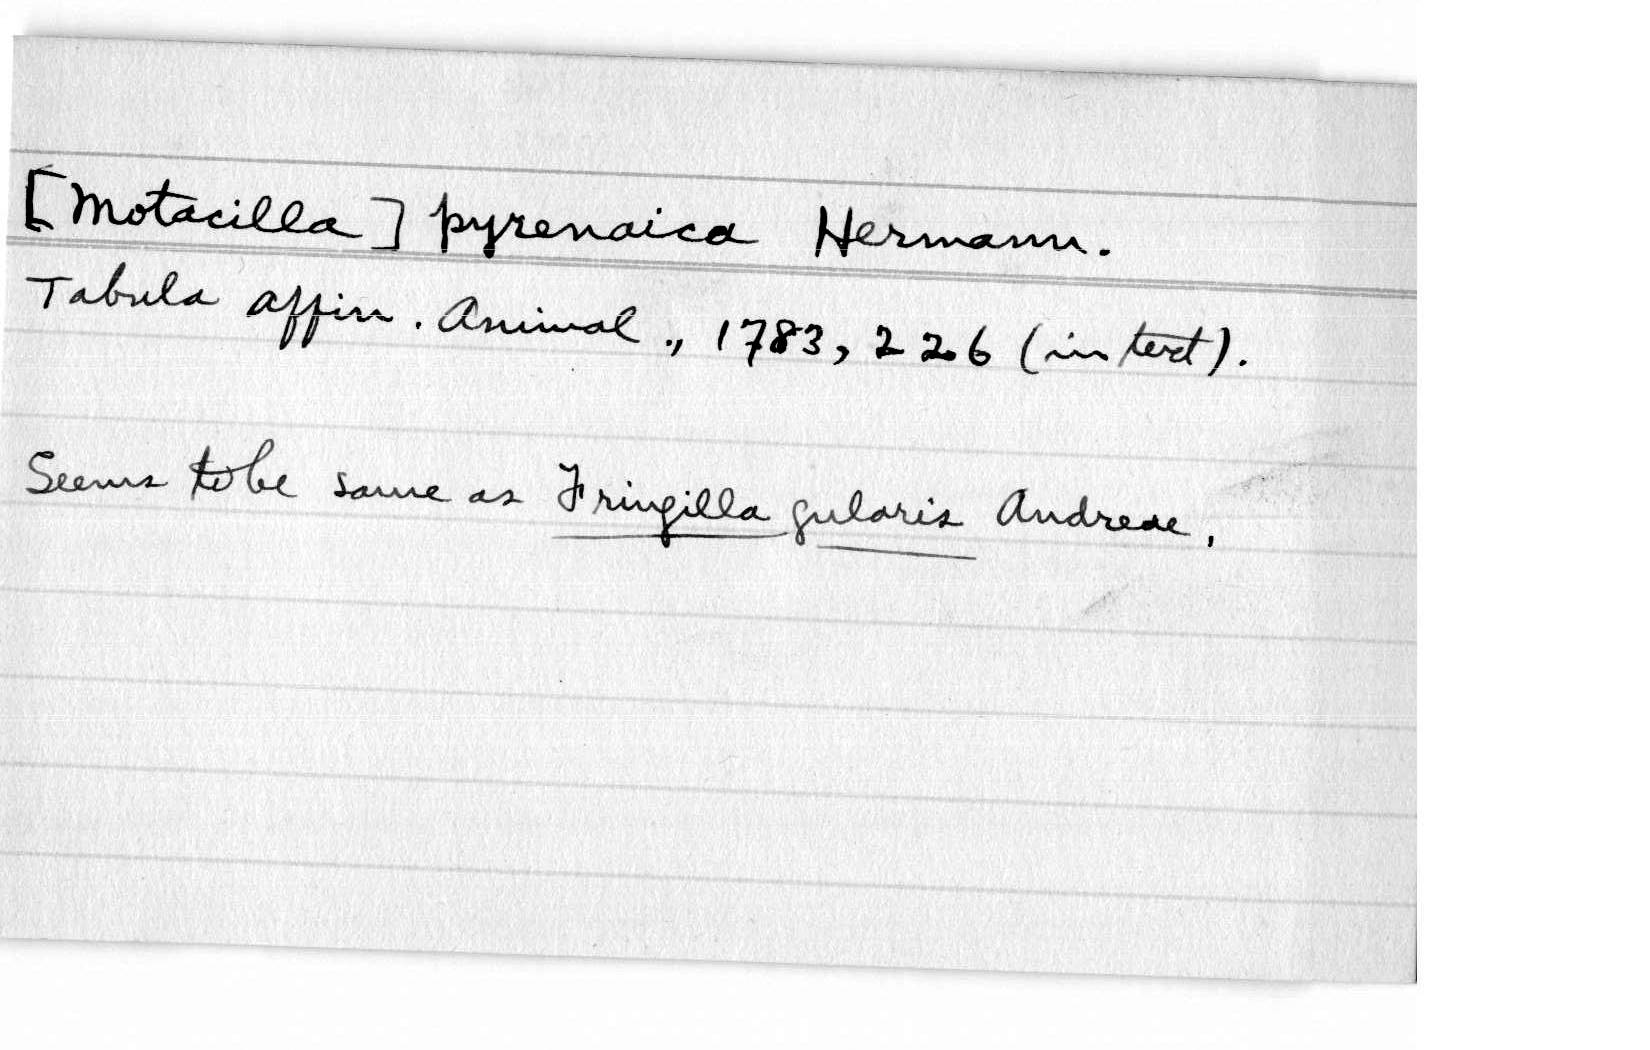 [Motacilla] pyrenaica Hermann.
Tabula affin. Animal., 1783, 226 (in text).
Seems to be same as Fringilla gularis Andreae.